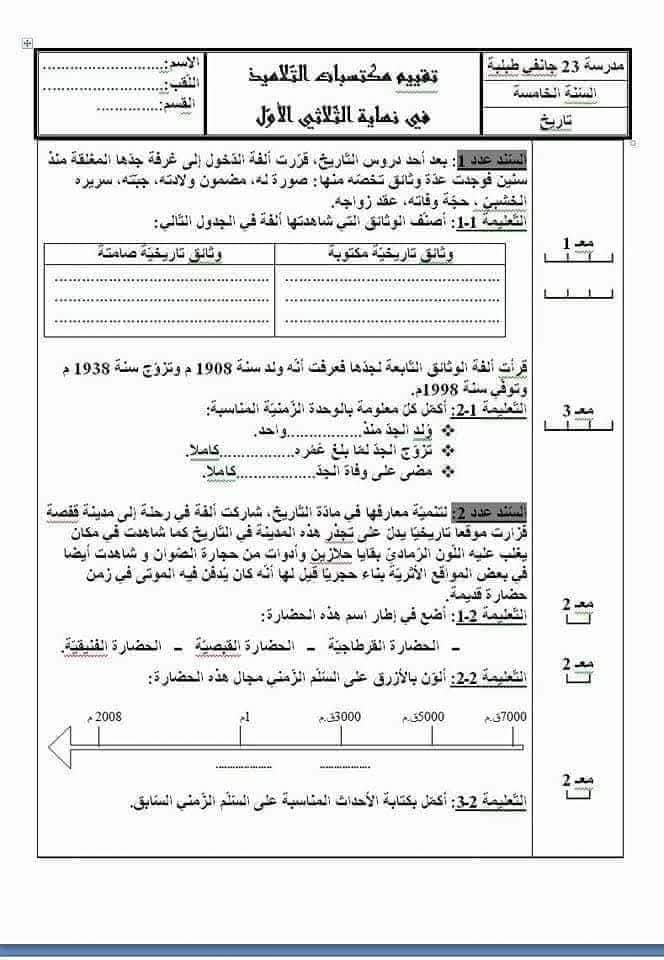 مدرسة 23 جانفي طبلبة
السّنة الخامسة
تاريخ
تقييم مكتسبات التّلاميذ
في نهاية الثّلاثي الأوّل
الاسم:............................
اللّقب:............................
القسم:..............
السّند عدد 1: بعد أحد دروس التّاريخ، قرّرت ألفة الدّخول إلى غرفة جدّها المغلقة منذ
سنين فوجدت عدّة وثائق تخصّه منها: صورة له، مضمون ولادته، جبّته، سريره
الخشبيّ ، حجّة وفاته، عقد زواجه.
التّعليمة 1-1: أصنّف الوثائق التي شاهدتها ألفة في الجدول التّالي:
معـ 1
وثائق تاريخيّة مكتوبة
وثائق تاريخيّة صامتة
قرأت ألفة الوثائق التّابعة لجدّها فعرفت أنّه ولد سنة 1908 م وتزوّج سنة 1938 م
وتوفّي سنة 1998م.
التّعليمة 1-2: أكمّل كلّ معلومة بالوحدة الزّمنيّة المناسبة:
معـ 3
❖ وُلد الجدّ منذ.................واحد.
❖ تزوّج الجدّ لمّا بلغ عمُره.................كاملا.
❖ مضى على وفاة الجدّ.................كاملا.
السّند عدد 2: لتنميّة معارفها في مادّة التّاريخ، شاركت ألفة في رحلة إلى مدينة قفصة
فزارت موقعا تاريخيّا يدلّ على تجذّر هذه المدينة في التّاريخ كما شاهدت في مكان
يغلب عليه اللّون الرّماديّ بقايا حلازين وأدوات من حجارة الصّوان و شاهدت أيضا
في بعض المواقع الأثريّة بناء حجريّا قيل لها أنّه كان يُدفن فيه الموتى في زمن
حضارة قديمة.
التّعليمة 2-1: أضع في إطار اسم هذه الحضارة:
معـ 2
ـ الحضارة القرطاجيّة ـ الحضارة القبصيّة ـ الحضارة الفنيقيّة.
التّعليمة 2-2: ألوّن بالأزرق على السّلّم الزّمني مجال هذه الحضارة:
معـ 2
7000ق.م 5000ق.م 3000ق.م 1م 2008 م
.................. ..................
التّعليمة 2-3: أكمّل بكتابة الأحداث المناسبة على السّلّم الزّمني السّابق.
معـ 2